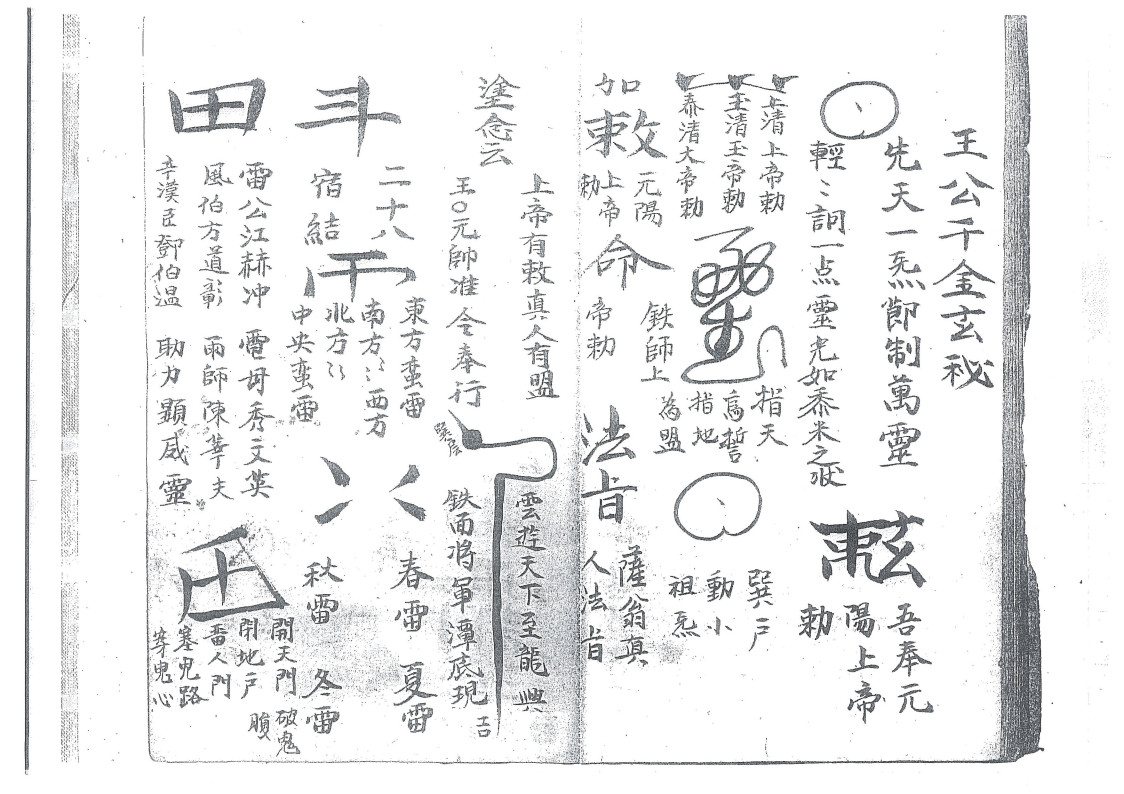 王公千金玄秘
先天一炁節制萬靈
吾奉元
陽上帝
勅
輕〻訶一点靈光如黍米之狀
上清上帝勅
玉清玉帝勅
泰清大帝勅
指天
為誓
指地
為盟
巽戶
動小
祖炁
加
敕
元陽
上帝
勅
命
鉄師上
帝勅
法旨
薩翁真
人法旨
上帝有敕真人有盟
雲遊天下至龍興
塗念云
王〇元帥准令奉行
鉄面将軍潭底現
吉
斗
二十八
宿結
東方蛮雷
南方〻西方
北方〻
中央蛮雷
春雷 夏雷
秋雷 冬雷
田
雷公江赫冲 電母秀文英
風伯方道彰 雨師陳華夫
辛漢臣鄧伯温 助力顯威靈
開天門
閉地戶
畨人門
塞鬼路
穿鬼心
破鬼